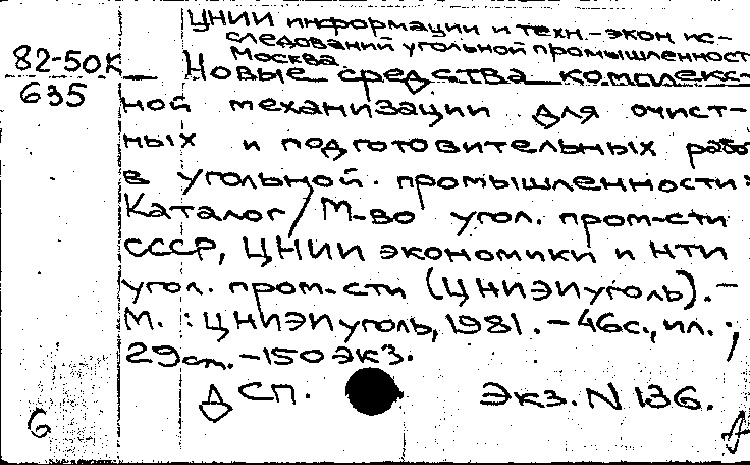 ЦНИИ информации и техн.-экон. ис-
следований угольной промышленност
Москва.
82-50К
635
Новые средства комплекс-
ной механизации для очист-
ных и подготовительных рабо
в угольной промышленности:
Каталог / М-во угол. пром-сти
СССР, ЦНИИ экономики и НТИ
угол. пром-сти (ЦНИЭИуголь). -
М. : ЦНИЭИуголь, 1981. - 46с., ил. ;
29 см. - 150 экз.
ДСП. Экз. N 136.
6